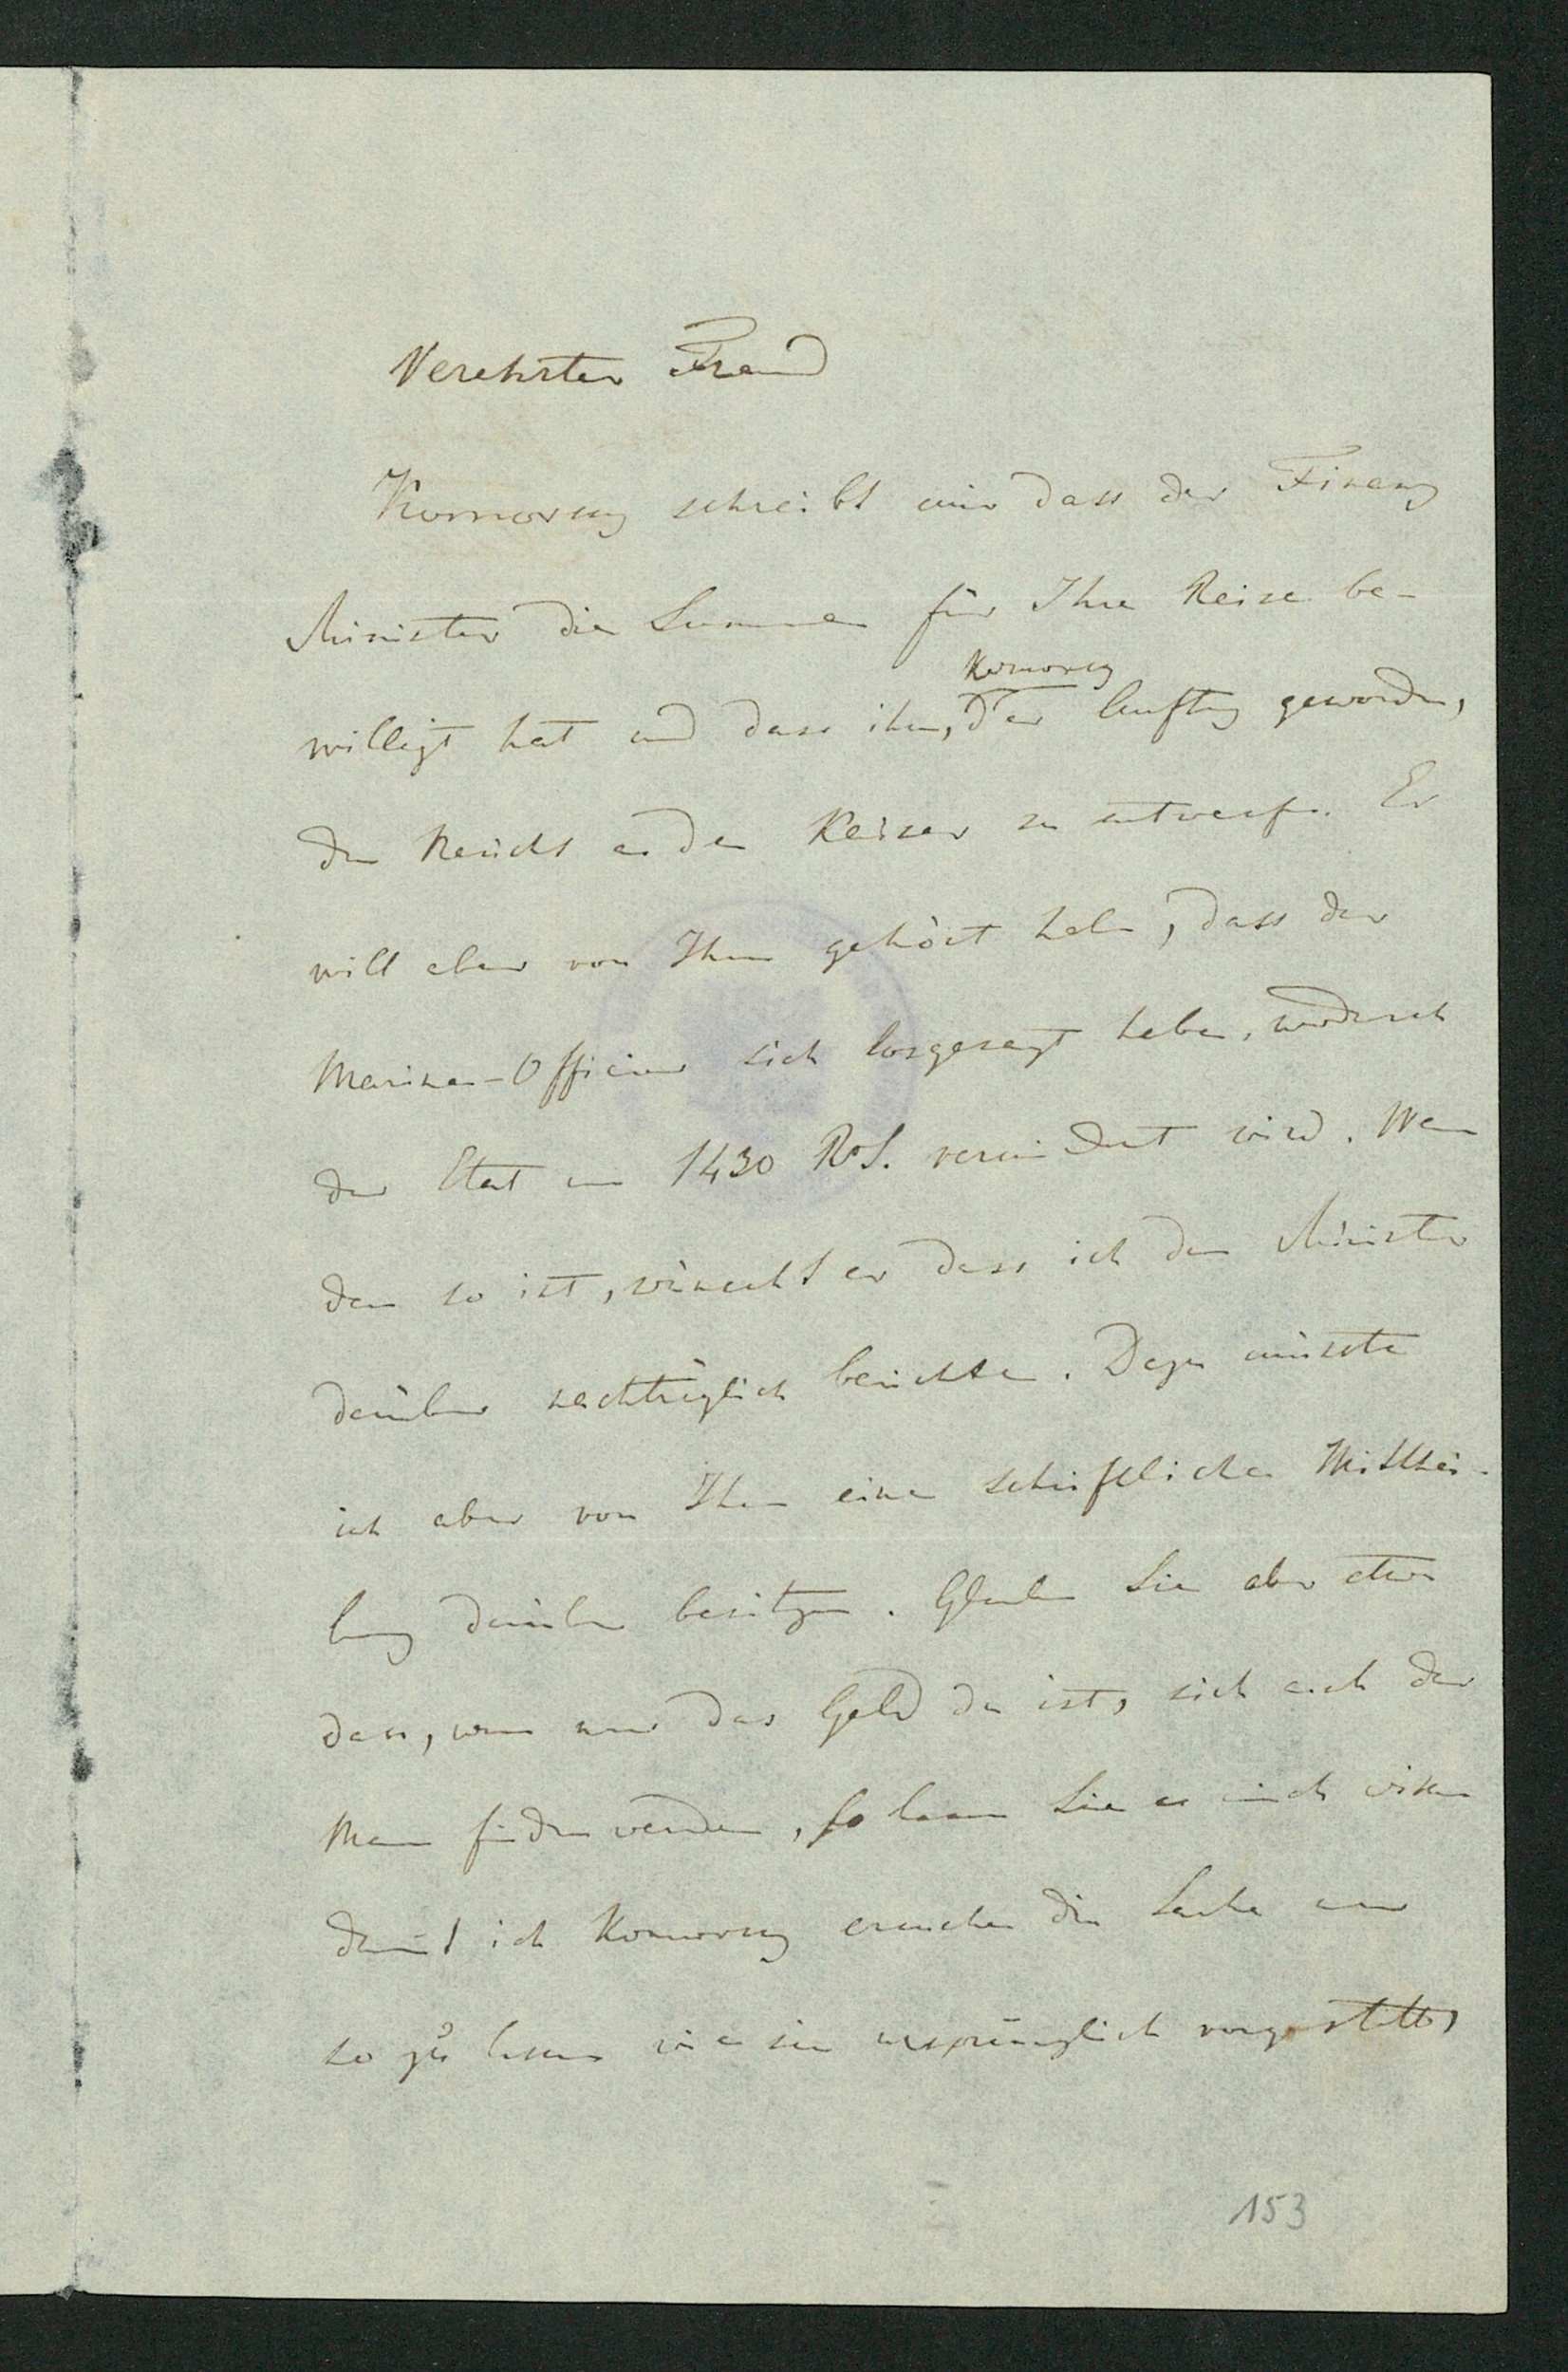 Verehrter Freund
Komovsky schreibt mir dass der Finanz
Minister die Summe für Ihre Reise be-
willigt hat und dass ihm, Komovsky der Auftrag geworden,
den Bericht an den Kaiser zu entwerfen. Er
will aber von Ihnen gehört haben, dass der
Marine-Officier sich losgesagt habe, wodurch
der Etat um 1430 RS. vermindert wird. Wenn
dem so ist, wünscht er dass ich dem Minister
darüber nachträglich berichte. Dazu müsste
ich aber von Ihnen eine schriftliche Mitthei-
lung darüber besitzen. Glauben Sie aber etwa
dass, wenn nur das Geld da ist, sich auch der
Mann finden werde, so lassen Sie es mich wissen
damit ich Komovsky ersuche die Sache nur
so zu lassen wie sie ursprünglich vorgestellt,
153